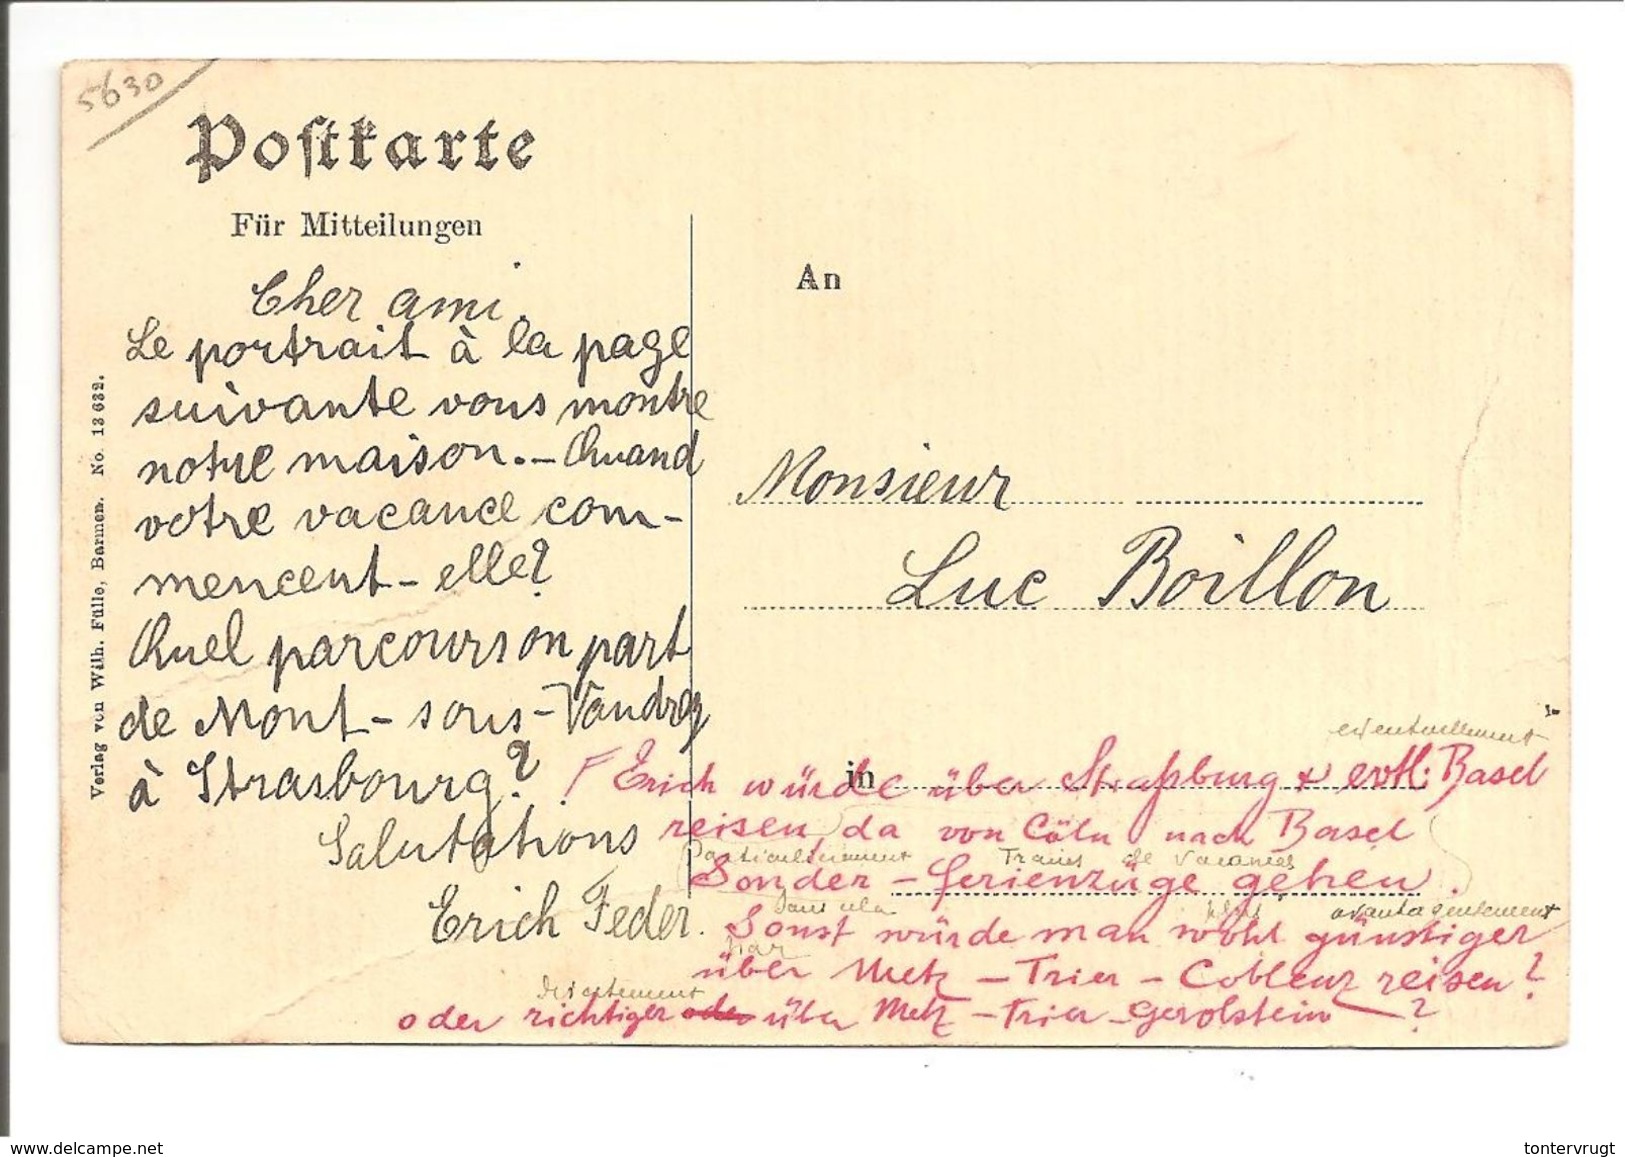 5630
Postkarte
Für Mitteilungen
Cher ami.
Le portrait à la page
suivante vous montre
notre maison.— Quand
votre vacance com-
mencent-elle?
Quel parcours on part
de Mont-sous-Vaudrey
à Strasbourg?
Salutations
Erich Feder.
Verlag von Wilh. Fülle, Barmen. No. 13632.
An
Monsieur
Luc Boillon
in
eventuellement
Erich würde über Straßburg + evtl: Basel
reisen, da von Cöln nach Basel
particulièrement Trains de vacances
Sonder-Ferienzüge gehen.
sans cela plus avantageusement
Sonst würde man wohl günstiger
par
über Metz – Trier – Coblenz reisen?
directement
oder richtiger über Metz – Trier – Gerolstein — ?
www.delcampe.net
tontervrugt